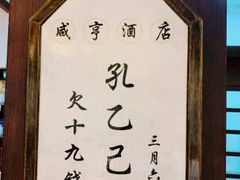 咸亨酒店
孔乙己
欠十九钱
三月六